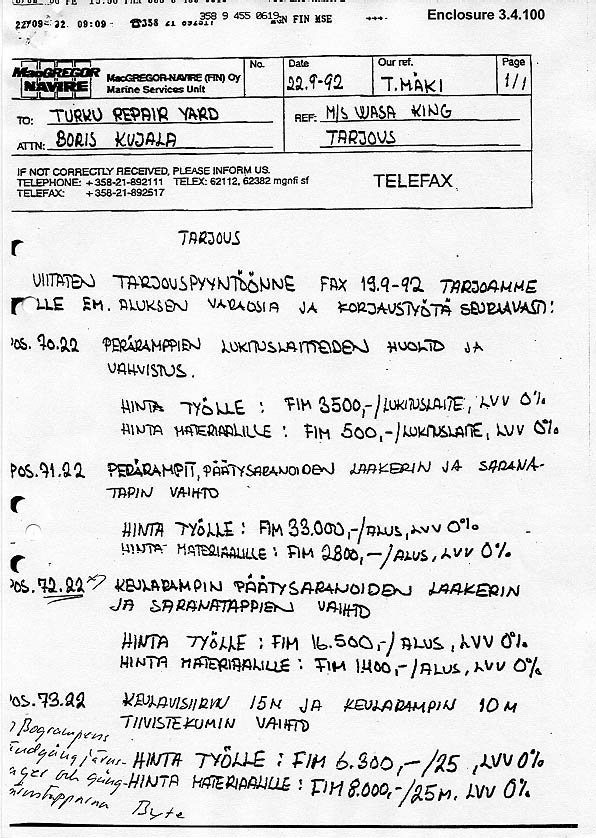 22/09-92 09:09 ☎358 21 358 9 455 0619 GN FIN MSE
Enclosure 3.4.100
MacGREGOR NAVIRE
MacGREGOR-NAVIRE (FIN) Oy
Marine Services Unit
No.
Date
22.9-92
Our ref.
T. MÄKI
Page
1/1
TO: TURKU REPAIR YARD
REF: M/S WASA KING
ATTN: BORIS KUJALA
TARJOUS
IF NOT CORRECTLY RECEIVED, PLEASE INFORM US.
TELEPHONE: +358-21-892111 TELEX: 62112, 62382 mgnfi sf
TELEFAX: +358-21-892517
TELEFAX
TARJOUS
VIITATEN TARJOUSPYYNTÖÖNNE FAX 19.9-92 TARJOAMME
LLE EM. ALUKSEN VARAOSIA JA KORJAUSTYÖTÄ SEURAAVASTI:
POS. 70.22 PERÄRAMPPIEN LUKITUSLAITTEIDEN HUOLTO JA
VAHVISTUS.
HINTA TYÖLLE : FIM 3500,-/LUKITUSLAITE, LVV 0%
HINTA MATERIAALILLE : FIM 500,-/LUKITUSLAITE, LVV 0%
POS. 71.22 PERÄRAMPIT, PÄÄTYSARANOIDEN LAAKERIN JA SARANA-
TAPIN VAIHTO
HINTA TYÖLLE : FIM 33.000,-/ALUS, LVV 0%
HINTA MATERIAALILLE : FIM 2800,-/ALUS, LVV 0%
POS. 72.22 *) KEULARAMPIN PÄÄTYSARANOIDEN LAAKERIN
JA SARANATAPPIEN VAIHTO
HINTA TYÖLLE : FIM 16.500,-/ALUS, LVV 0%
HINTA MATERIAALILLE : FIM 1400,-/ALUS, LVV 0%
POS. 73.22 KEULAVISIIRIN 15M JA KEULARAMPIN 10M
TIIVISTEKUMIN VAIHTO
HINTA TYÖLLE : FIM 6.300,-/25 , LVV 0%
HINTA MATERIAALILLE : FIM 8.000,-/25M. LVV 0%
Bogrampens
ändgångjärns-
ager och gång-
järnstapparna
Byte